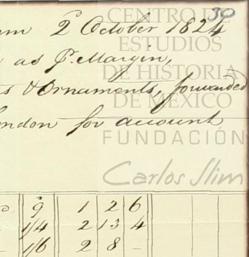 30
um 2 October 1824
CENTRO DE
ESTUDIOS
as P. Margin,
DE HISTORIA
s & Ornaments, forwarded
DE MÉXICO
ondon for account
FUNDACIÓN
Carlos Slim
9 1 2 6
1/4 2 13 4
1/6 2 8 –